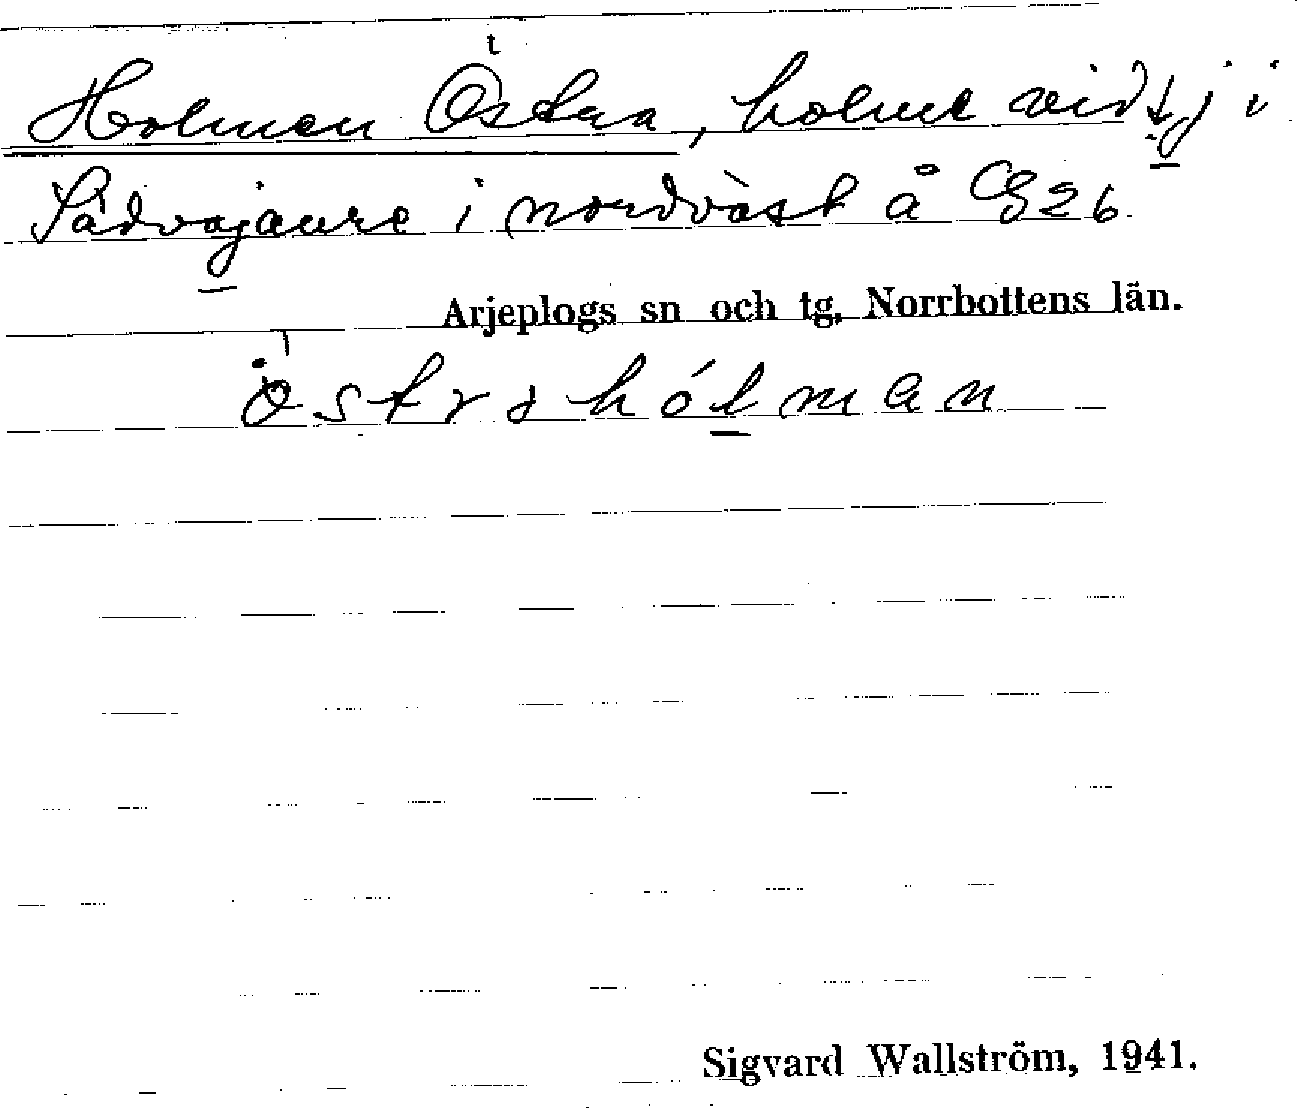 Holmen Östra, holme vid tj i
Sädvajaure i nordväst å G26
Arjeplogs sn och tg, Norrbottens län.
östrahólman
Sigvard Wallström, 1941.